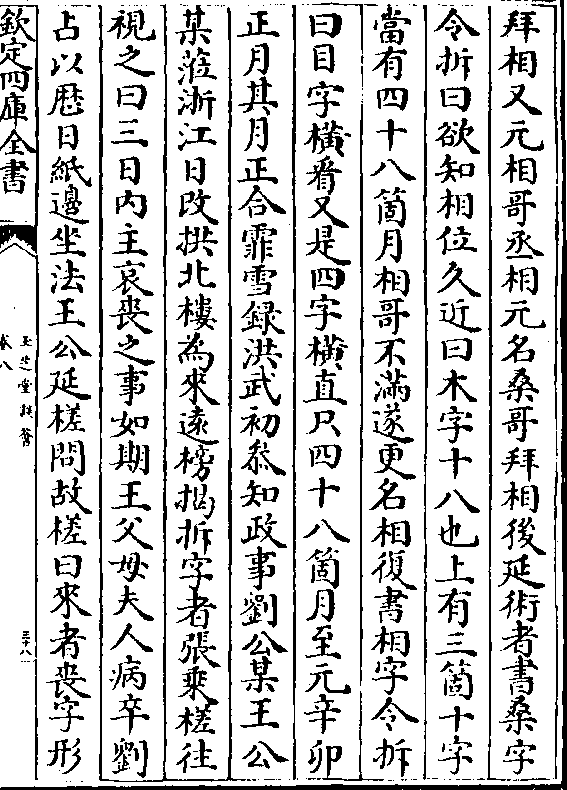 拜相又元相哥丞相元名桑哥拜相後延術者書桑字
令拆曰欲知相位久近曰木字十八也上有三箇十字
當有四十八箇月相哥不滿遂更名相復書相字令拆
曰目字橫看又是四字橫直只四十八箇月至元辛卯
正月其月正合霏雪録洪武初叅知政事劉公某王公
某蒞浙江日改拱北樓為來遠榜揭拆字者張乘槎往
視之曰三日内主哀喪之事如期王父母夫人病卒劉
占以厯日紙邊坐法王公延槎問故槎曰來者喪字形
欽定四庫全書
玉芝堂談薈
卷八
三十八